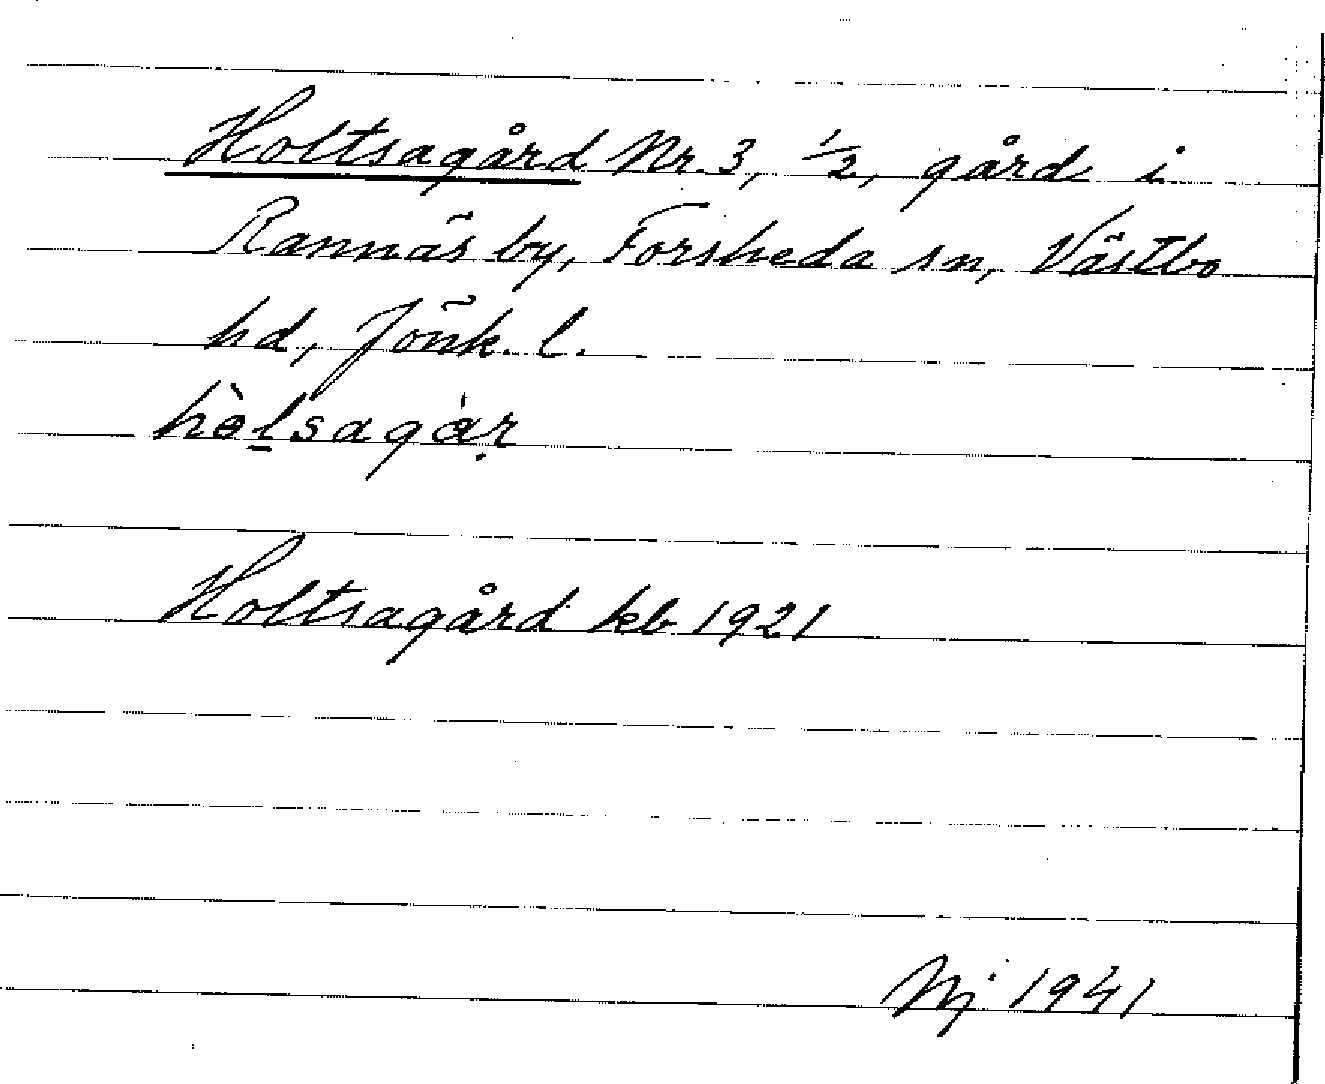 Holtsagård Nr. 3, 1/2, gård i
Rannäs by, Forsheda sn, Västbo
hd, Jönk. l.
hòl̲sagàṛ
Holtsagård kb 1921
Nj 1941